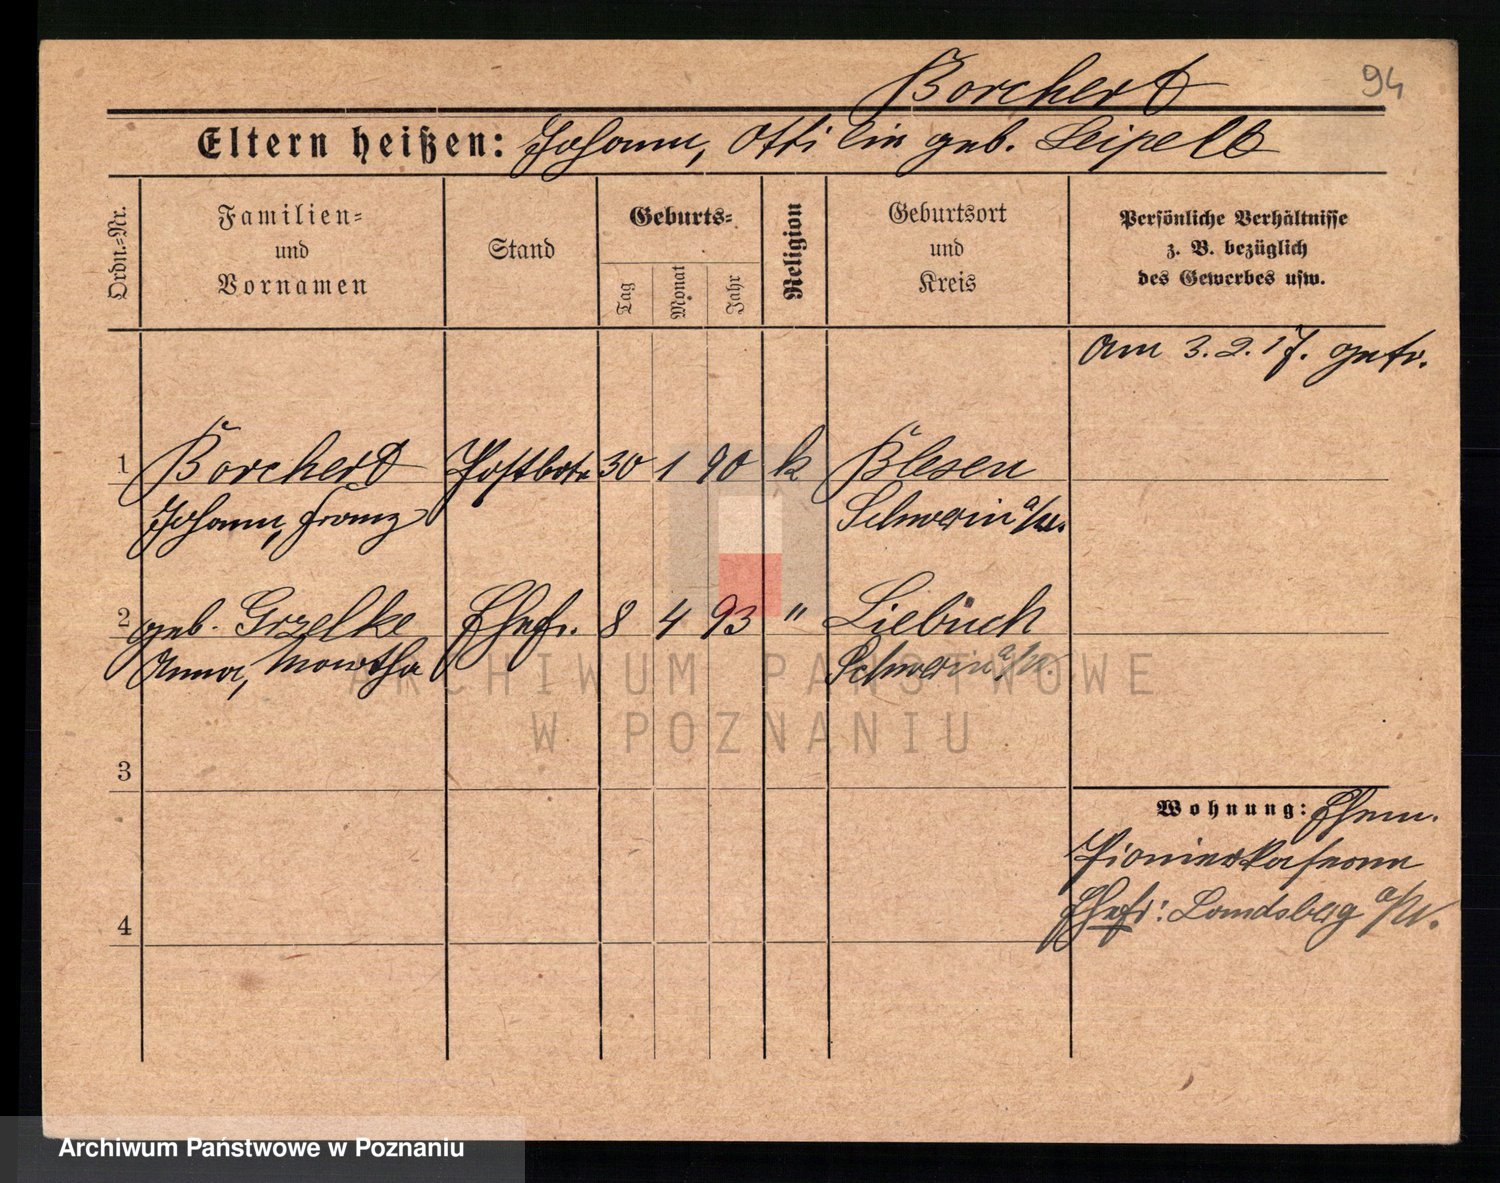 Borchert
94
Eltern heißen: Johann, Ottilie geb. Leipelt
Ordn.=Nr.
Familien=
und
Vornamen
Stand
Geburts=
Tag
Monat
Jahr
Religion
Geburtsort
und
Kreis
Persönliche Verhältnisse
z. B. bezüglich
des Gewerbes usw.
Am 3.2.17. getr.
1 Borchert Postbote 30 1 90 k Blesen
Johann, Franz Schwerin a/W.
2 geb. Grzelke Ehefr. 8 4 93 " Liebuch
Anna, Martha Schwerin a/W.
3
Wohnung: Ehem.
Pionierkaserne
4
Ehefr: Landsberg a/W.
ARCHIWUM PAŃSTWOWE
W POZNANIU
Archiwum Państwowe w Poznaniu